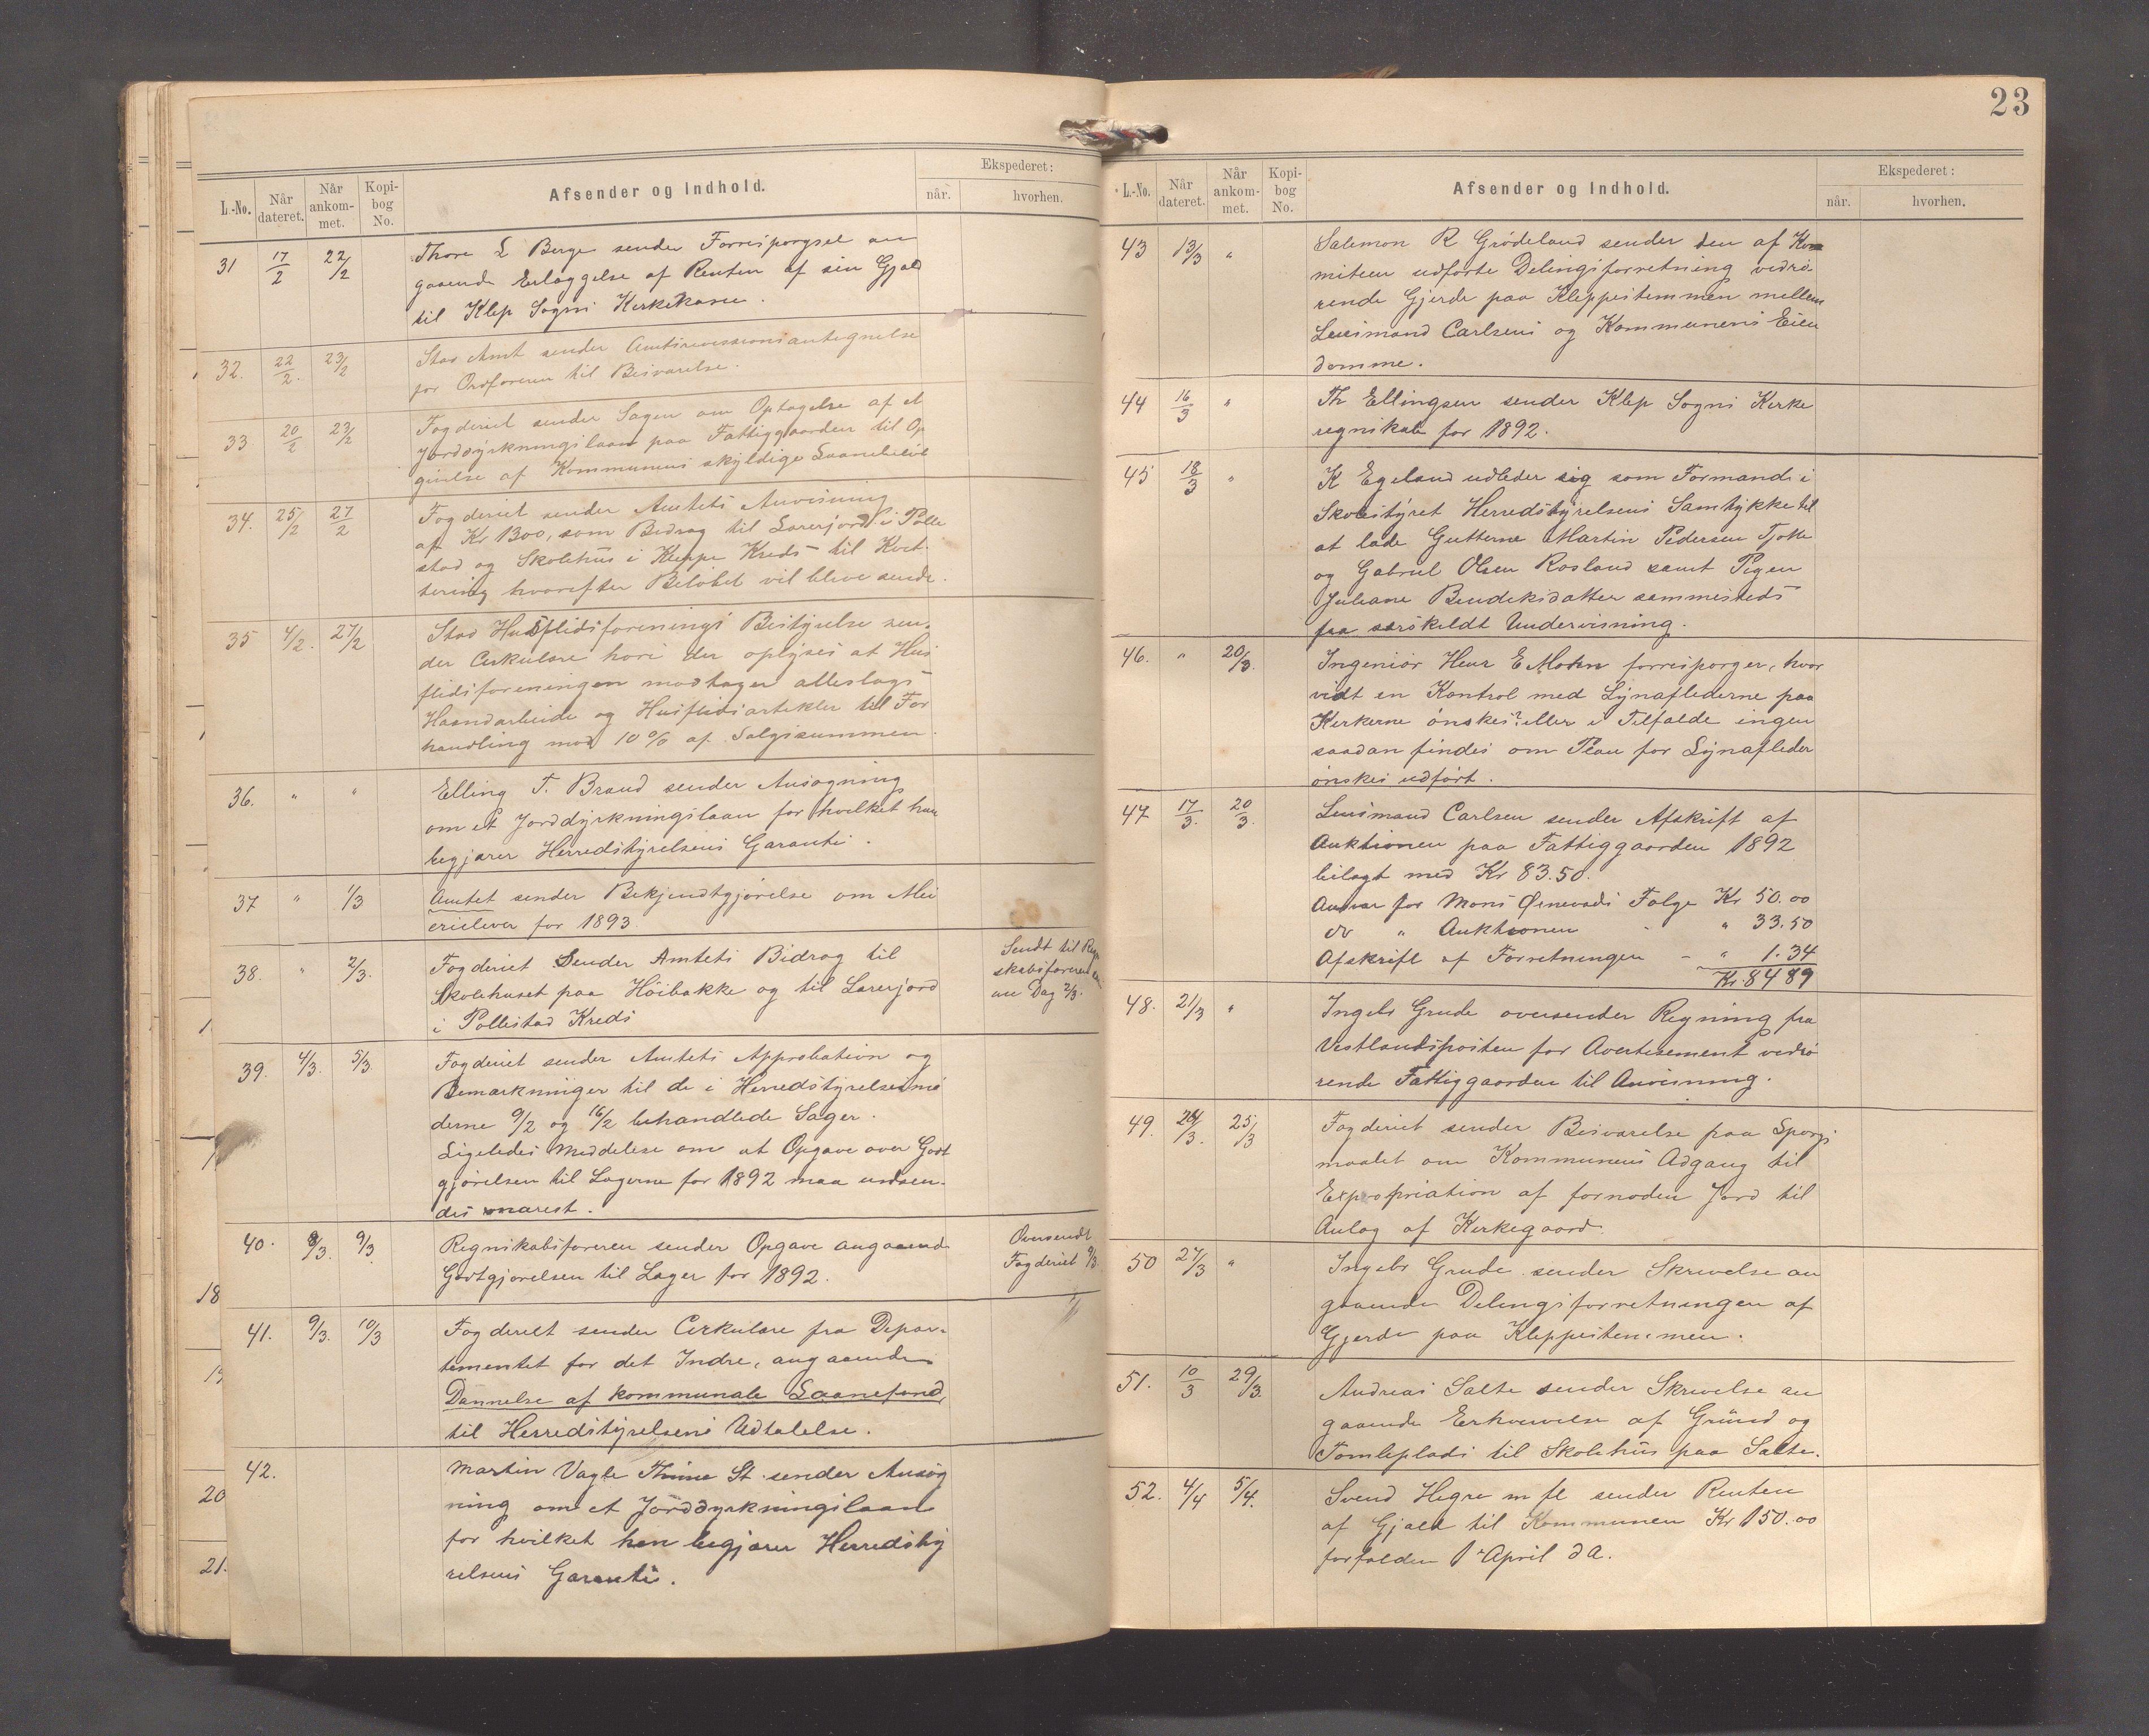 L.-No.
Når dateret.
Når ankommet.
Kopibog No.
Afsender og Indhold.
Ekspederet:
når.
hvorhen.
31 17/2 22/2 Thore L Berge sender Forrespørgsel an
gaaende Erlæggelse af Renten af sin Gjæld
til Klep Sogns Kirkekasse.
32. 22/2. 23/2 Stav Amt sender Amtsrevisionsantegnelse
for Ordføreren til Besvarelse.
33 20/2 23/2 Fogderiet sender Sagen om Optagelse af et
Jorddyrkningslaan paa Fattiggaarden til Op
givelse af Kommunens skyldige Laanebeløb
34. 25/2 27/2 Fogderiet sender Amtets Anvisning
af Kr 1300, som Bidrag til Lærerjord i Polle
stad og Skolehus i Kleppe Kreds til Kvit-
tering hvorefter Beløbet vil blive sendt.
35 4/2. 27/2 Stav Husflidsforenings Bestyrelse sen-
der Cirkulære hvori der oplyses at Hus
flidsforeningen modtager alleslags
Haandarbeide og Husflidsartikler til For
handling mod 10% af Salgssummen.
36. " " Elling T. Braud sender Ansøgning
om et Jorddyrkningslaan for hvilket han
begjærer Herredstyrelsens Garanti.
37 " 1/3 Amtet sender Bekjendtgjørelse om Mei
erielever for 1893
38. " 2/3. Fogderiet Sender Amtets Bidrag til
Skolehuset paa Höibakke og til Lærerjord
i Pollestad Kreds
Sendt til Regn
skabsføreren
nu Dag 2/3.
39. 4/3. 5/3 Fogderiet sender Amtets Approbation og
Bemærkninger til de i Herredstyrelsesmø
derne 9/2 og 16/2 behandlede Sager.
Ligeledes Meddelese om at Opgave over Godt
gjørelsen til Lagerne for 1892 maa indsen-
des snarest.
40. 8/3. 9/3 Regnskabsføreren sender Opgave angaaende
Godtgjørelsen til Lager for 1892.
Oversendt
Fogderiet 9/3.
41. 9/3. 10/3 Fogderiet sender Cirkulære fra Depar-
tementet for det Indre, angaaende
Dannelse af kommunale Laanefond,
til Herredstyrelsens Udtalelse.
42. Martin Vagle Thime St. sender Ansøg
ning om et Jorddyrkningslaan
for hvilket han begjærer Herredsty
relsens Garanti.
23
L.-No.
Når dateret.
Når ankommet.
Kopibog No.
Afsender og Indhold.
Ekspederet:
når.
hvorhen.
43 13/3 " Salemon R Grödeland sender den af Kom
miteen udførte Delingsforretning vedrø-
rende Gjerde paa Kleppestemmen mellem
Lensmand Carlsens og Kommunens Eien
domme.
44 16/3 " Th Ellingsen sender Klep Sogns Kirke
regnskab for 1892.
45 18/3 " K Egeland udbeder sig som Formand i
Skolestyret Herredstyrelsens Samtykke til
at lade Gutterne Martin Pedersen Tjøtte
og Gabriel Olsen Rosland samt Pigen
Juliane Bendiksdatter sammesteds
faa særskildt Undervisning.
46. " 20/3. Ingeniør Henr E Mohn forrespørger, hvor
vidt en Kontrol med Lynaflederne paa
Kirkerne ønskes? eller i Tilfælde ingen
saadan findes om Plan for Lynafleder
ønskes udført.
47 17/3. 20/3. Lensmand Carlsen sender Afskrift af
Auktionen paa Fattiggaarden 1892
bilagt med Kr 83.50.
Ansvar for Mons Ørnevads Følge Kr 50.00
do " Auktionen - " 33.50
Afskrift af Forretningen - " 1.34
Kr. 84 89
48. 21/3 " Ingebr Grude oversender Regning fra
Vestlandsposten for Avertisement vedrø
rende Fattiggaarden til Anvisning.
49. 24/3. 25/3 Fogderiet sender Besvarelse paa Spørgs
maalet om Kommunens Adgang til
Expropriation af fornøden Jord til
Anlæg af Kirkegaard.
50 27/3 " Ingebr Grude sender Skrivelse an
gaaende Delingsforretningen af
Gjerde paa Kleppestemmen.
51. 10/3 29/3. Andreas Salte sender Skrivelse an
gaaende Erhvervelse af Grund og
Tomteplads til Skolehus paa Salte.
52. 4/4 5/4. Svend Hegre m fl sender Renten
af Gjæld til Kommunen Kr 150.00
forfalden 1 April d A.
18
20
21.